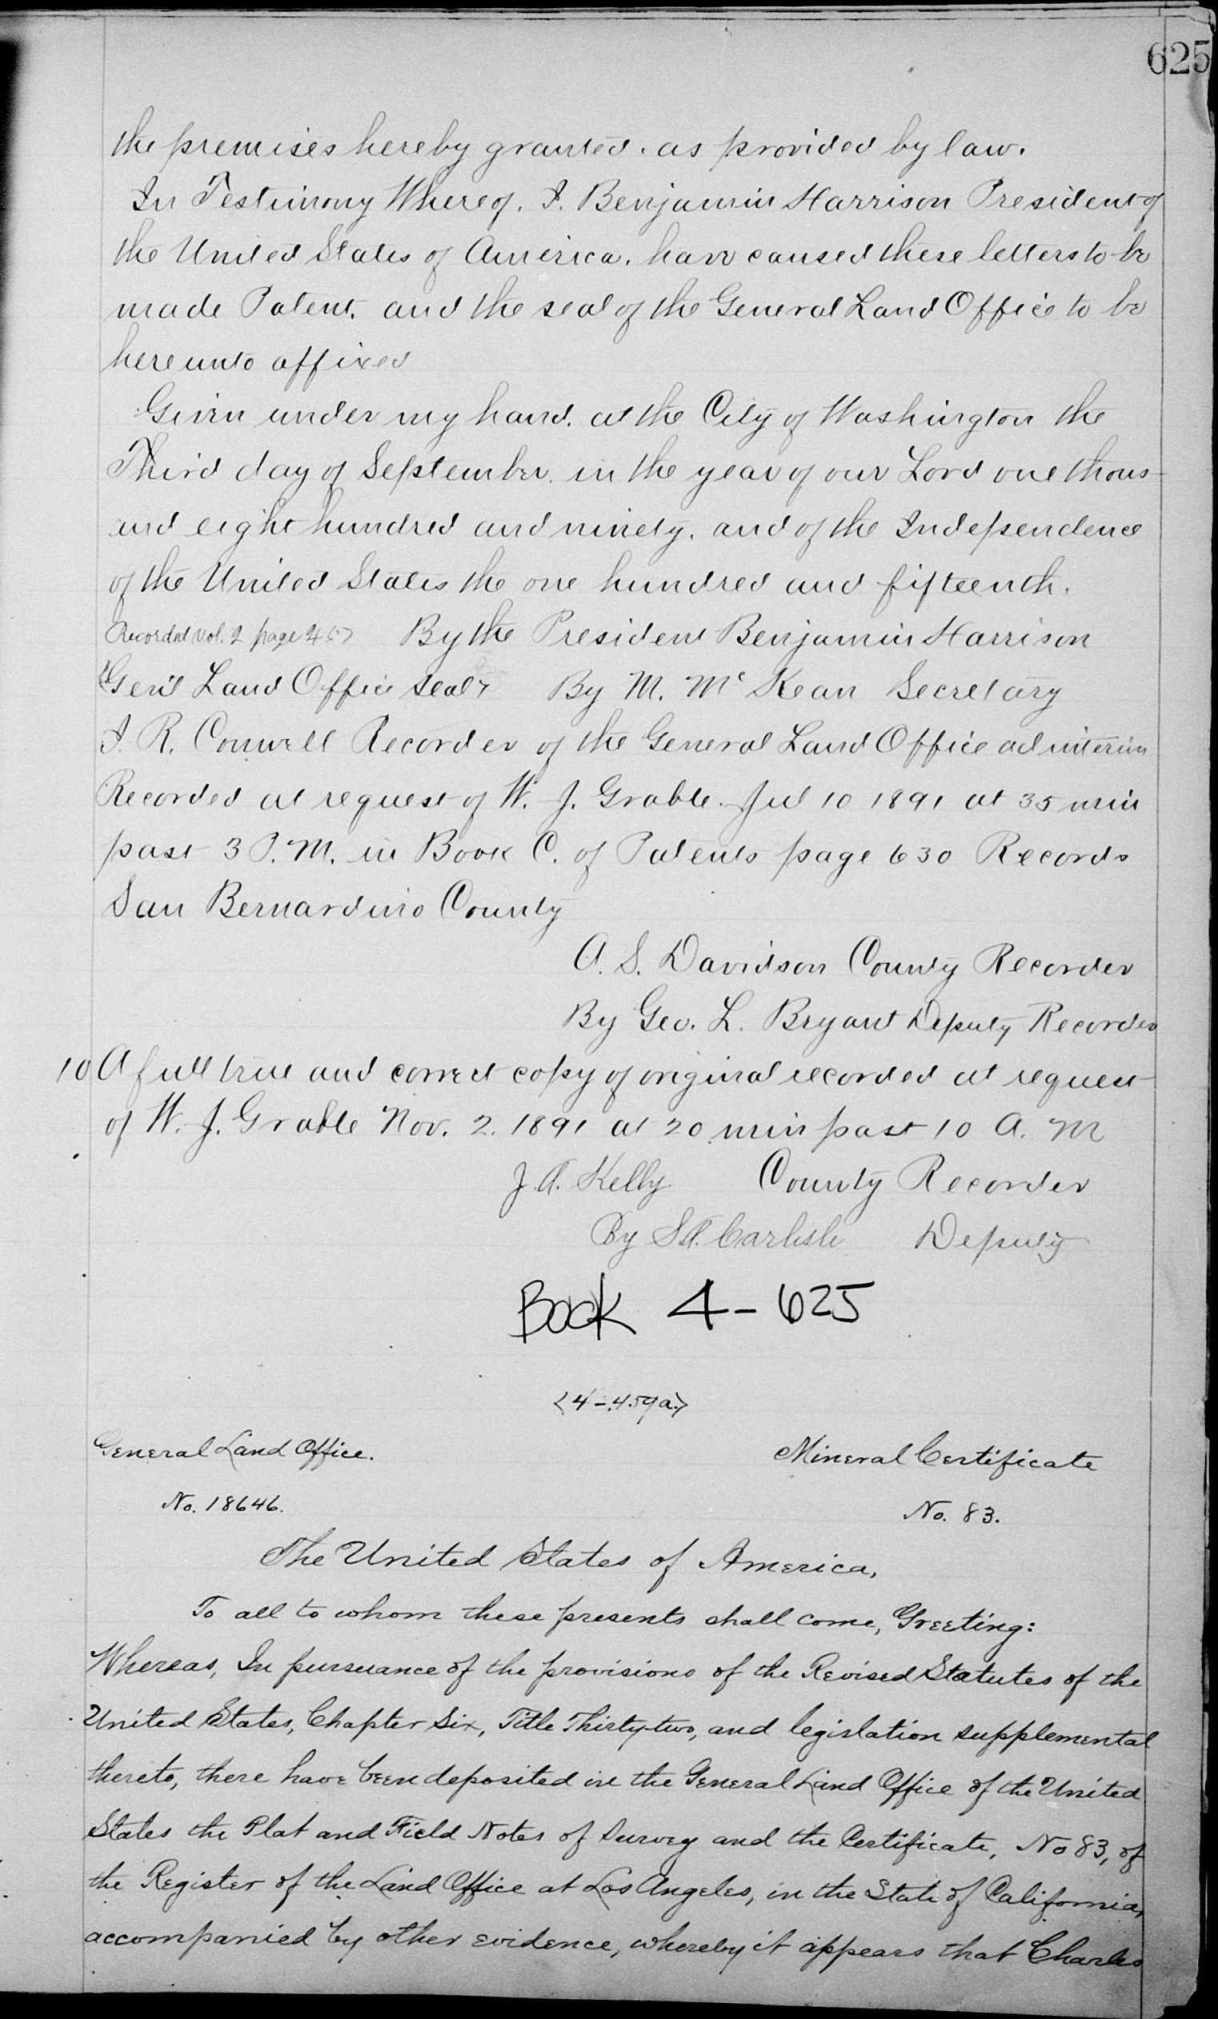 625
the premises hereby granted. as provided by law.
In Testimony Whereof. I. Benjamin Harrison President of
the United States of America. have caused these letters to be
made Patent. and the seal of the General Land Office to be
hereunto affixed
Given under my hand. at the City of Washington the
Third day of September. in the year of our Lord one thous-
and eight hundred and ninety. and of the Independence
of the United States the one hundred and fifteenth.
Recorded Vol. 2 page By the President Benjamin Harrison
Gen'l Land Office seal By M. McKean Secretary
I. R. Conwell Recorder of the General Land Office ad interim
Recorded at request of W. J. Grable. Jul 10 1891 at 35 min
past 3 P.M. in Book C. of Patents page 630 Records
San Bernardino County
A. S. Davidson County Recorder
By Geo. L. Bryant Deputy Recorder
10 A full true and correct copy of original recorded at request
of W. J. Grable Nov. 2. 1891 at 20 min past 10 A. M
J. A. Kelly County Recorder
By Carlisle Deputy
Book 4-625
(4-459a)
General Land Office. Mineral Certificate
No. 18646. No. 83.
The United States of America,
To all to whom these presents shall come, Greeting:
Whereas, In pursuance of the provisions of the Revised Statutes of the
United States, Chapter Six, Title Thirty-two, and legislation supplemental
thereto, there have been deposited in the General Land Office of the United
States the Plat and Field Notes of Survey and the Certificate, No 83, of
the Register of the Land Office at Los Angeles, in the State of California,
accompanied by other evidence, whereby it appears that Charles